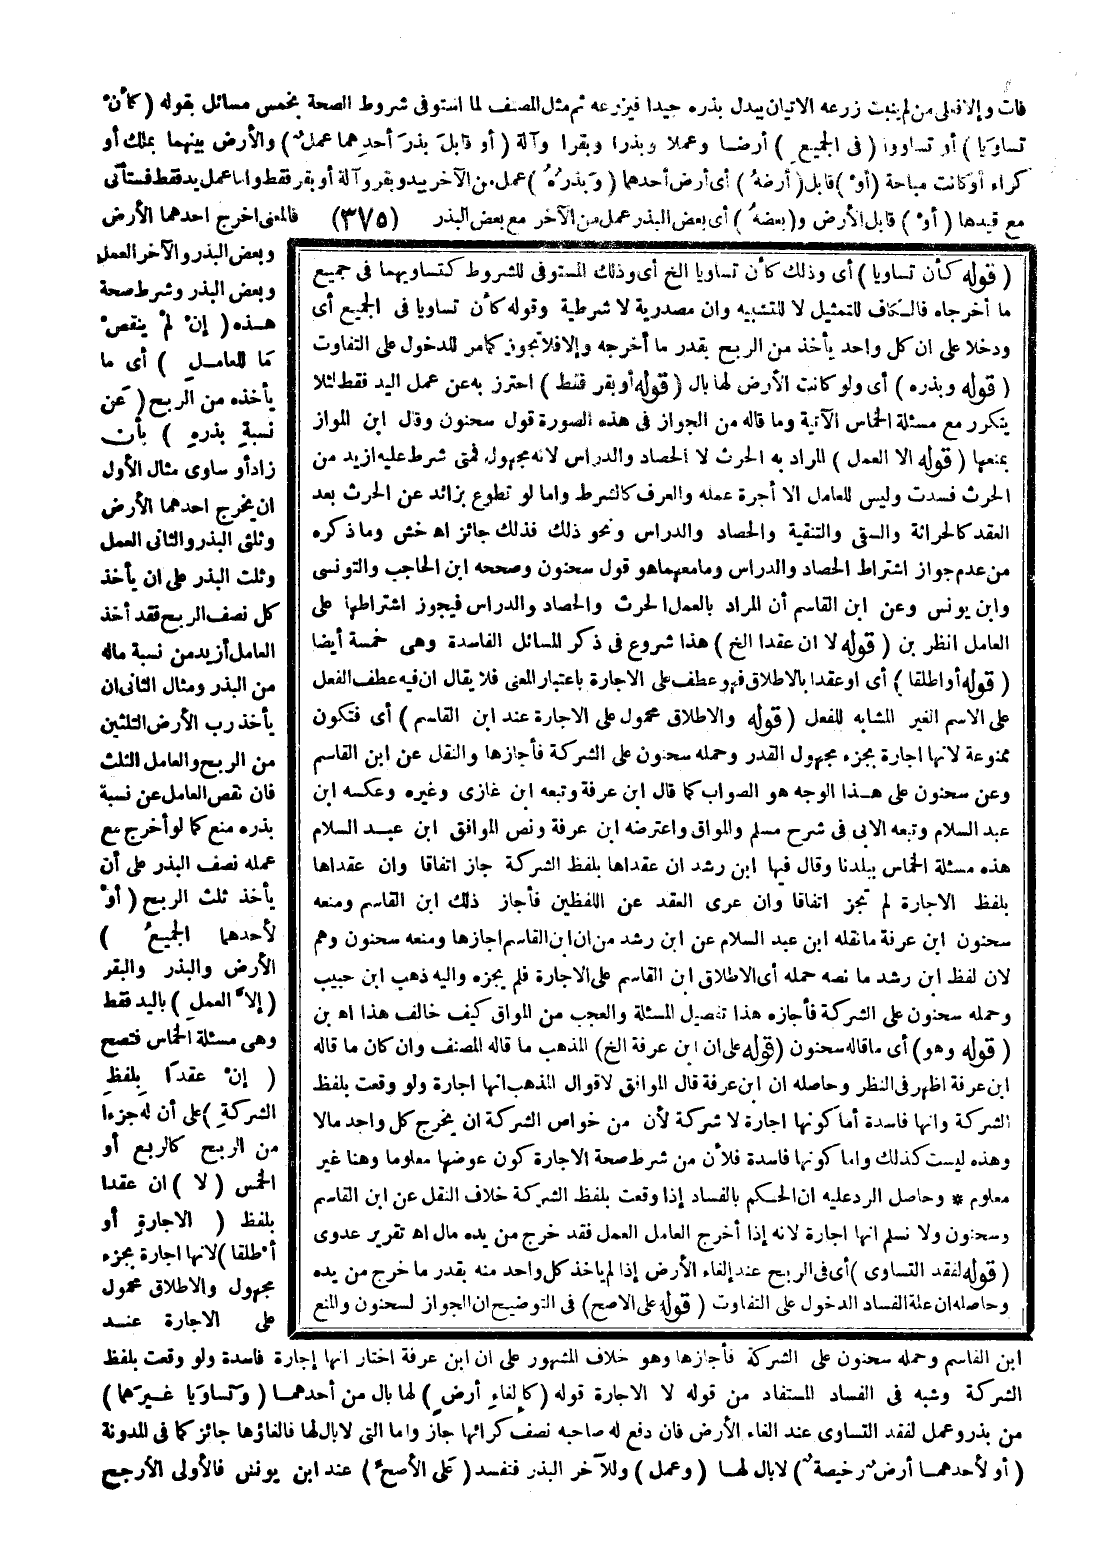 فات وإلا فعلى من لم ينبت زرعه الاتيان ببدل بذره جيدا فيزرعه ثم مثل المصنف لما استوفى شروط الصحة بخمس مسائل بقوله ( كأنْ
تساوَيَا ) أو تساووا ( فى الجميع ِ ) أرضا وعملا وبذرا وبقرا وآلة ( أو قابلَ بذرَ أحدِهما عملٌ ) والأرض بينهما بملك أو
كراء أو كانت مباحة (أوْ) قابل ( أرضهُ ) أى أرض أحدهما ( وَبذرُهُ ) عمل من الآخر بيد وبقر وآلة أو بقر فقط واما عمل يد فقط فستأتى
مع قيدها ( أوْ ) قابل الأرض و( بعضهُ ) أى بعض البذر عمل من الآخر مع بعض البذر (٣٧٥) فالمعنى اخرج احدهما الأرض
وبعض البذر والآخر العمل
وبعض البذر وشرط صحة
هـذه ( إنْ لمْ ينقصْ
مَا للعامـلِ ) أى ما
يأخذه من الربح ( عَن
نسبةِ بذرهِ ) بأن
زاد أو ساوى مثال الأول
ان يخرج احدهما الأرض
وثلثى البذر والثانى العمل
وثلث البذر على ان يأخذ
كل نصف الربح فقد أخذ
العامل أزيد من نسبة ماله
من البذر ومثال الثانى ان
يأخذ رب الأرض الثلثين
من الربح والعامل الثلث
فان نقص العامل عن نسبة
بذره منع كما لو أخرج مع
عمله نصف البذر على أن
يأخذ ثلث الربح ( أوْ
لأحدهما الجميعُ )
الأرض والبذر والبقر
( إلاّ العملَ ) باليد فقط
وهى مسئلة الخماس فتصح
( إنْ عقدَا بلفظِ
الشركةِ ) على أن له جزءا
من الربح كالربع أو
الخمس ( لا ) ان عقدا
بلفظ ( الاجارةِ أو
أطلقا ) لانها اجارة بجزء
مجهول والاطلاق محمول
على الاجارة عنـد
( قوله كأن تساويا ) أى وذلك كأن تساويا الخ أى وذلك المستوفى للشروط كتساويهما فى جميع
ما أخرجاه فالكاف للتمثيل لا للتشبيه وان مصدرية لا شرطية وقوله كأن تساويا فى الجميع أى
ودخلا على ان كل واحد يأخذ من الربح بقدر ما أخرجه وإلا فلا تجوز كما مر للدخول على التفاوت
( قوله وبذره ) أى ولو كانت الأرض لها بال ( قوله أو بقر فقط ) احترز به عن عمل اليد فقط لئلا
يتكرر مع مسئلة الخماس الآتية وما قاله من الجواز فى هذه الصورة قول سحنون وقال ابن المواز
بمنعها ( قوله الا العمل ) المراد به الحرث لا الحصاد والدراس لانه مجهول فمتى شرط عليه ازيد من
الحرث فسدت وليس للعامل الا أجرة عمله والعرف كالشرط واما لو تطوع بزائد عن الحرث بعد
العقد كالحراثة والسقى والتنقية والحصاد والدراس ونحو ذلك فذلك جائز اه خش وما ذكره
من عدم جواز اشتراط الحصاد والدراس وما معهما هو قول سحنون وصححه ابن الحاجب والتونسى
وابن يونس وعن ابن القاسم أن المراد بالعمل الحرث والحصاد والدراس فيجوز اشتراطها على
العامل انظر بن ( قوله لا ان عقدا الخ ) هذا شروع فى ذكر المسائل الفاسدة وهى خمسة أيضا
( قوله أو اطلقا ) أى او عقدا بالاطلاق فهو عطف على الاجارة باعتبار المعنى فلا يقال ان فيه عطف الفعل
على الاسم الغير المشابه للفعل ( قوله والاطلاق محمول على الاجارة عند ابن القاسم ) أى فتكون
ممنوعة لانها اجارة بجزء مجهول القدر وحمله سحنون على الشركة فأجازها والنقل عن ابن القاسم
وعن سحنون على هـذا الوجه هو الصواب كما قال ابن عرفة وتبعه ابن غازى وغيره وعكسه ابن
عبد السلام وتبعه الابى فى شرح مسلم والمواق واعترضه ابن عرفة ونص الموافق ابن عبـد السلام
هذه مسئلة الخماس ببلدنا وقال فيها ابن رشد ان عقداها بلفظ الشركة جاز اتفاقا وان عقداها
بلفظ الاجارة لم تجز اتفاقا وان عرى العقد عن اللفظين فأجاز ذلك ابن القاسم ومنعه
سحنون ابن عرفة ما نقله ابن عبد السلام عن ابن رشد من ان ابن القاسم اجازها ومنعه سحنون وهم
لان لفظ ابن رشد ما نصه حمله أى الاطلاق ابن القاسم على الاجارة فلم يجزه واليه ذهب ابن حبيب
وحمله سحنون على الشركة فأجازه هذا تفصيل المسئلة والعجب من المواق كيف خالف هذا اه بن
( قوله وهو ) أى ما قاله سحنون ( قوله على ان ابن عرفة الخ ) المذهب ما قاله المصنف وان كان ما قاله
ابن عرفة اظهر فى النظر وحاصله ان ابن عرفة قال الموافق لاقوال المذهب انها اجارة ولو وقعت بلفظ
الشركة وانها فاسدة أما كونها اجارة لا شركة لأن من خواص الشركة ان يخرج كل واحد مالا
وهذه ليست كذلك واما كونها فاسدة فلأن من شرط صحة الاجارة كون عوضها معلوما وهنا غير
معلوم * وحاصل الرد عليه ان الحكم بالفساد إذا وقعت بلفظ الشركة خلاف النقل عن ابن القاسم
وسحنون ولا نسلم انها اجارة لانه إذا أخرج العامل العمل فقد خرج من يده مال اه تقرير عدوى
( قوله لفقد التساوى ) أى فى الربح عند إلغاء الأرض إذا لم يأخذ كل واحد منه بقدر ما خرج من يده
وحاصله ان علة الفساد الدخول على التفاوت ( قوله على الاصح ) فى التوضيح ان الجواز لسحنون والمنع
ابن القاسم وحمله سحنون على الشركة فأجازها وهو خلاف المشهور على ان ابن عرفة اختار انها إجارة فاسدة ولو وقعت بلفظ
الشركة وشبه فى الفساد المستفاد من قوله لا الاجارة قوله ( كإلغاءِ أرضٍ ) لها بال من أحدهمـا ( وتَساوَيَا غيرَهما )
من بذر وعمل لفقد التساوى عند الغاء الأرض فان دفع له صاحبه نصف كرائها جاز واما التى لا بال لها فالغاؤها جائز كما فى المدونة
( أو لأحدهمـا أرضٌ رخيصةٌ ) لا بال لهـا ( وعمل ) وللآخر البذر فتفسد ( عَلَى الأصحِّ ) عند ابن يونس فالأولى الأرجح